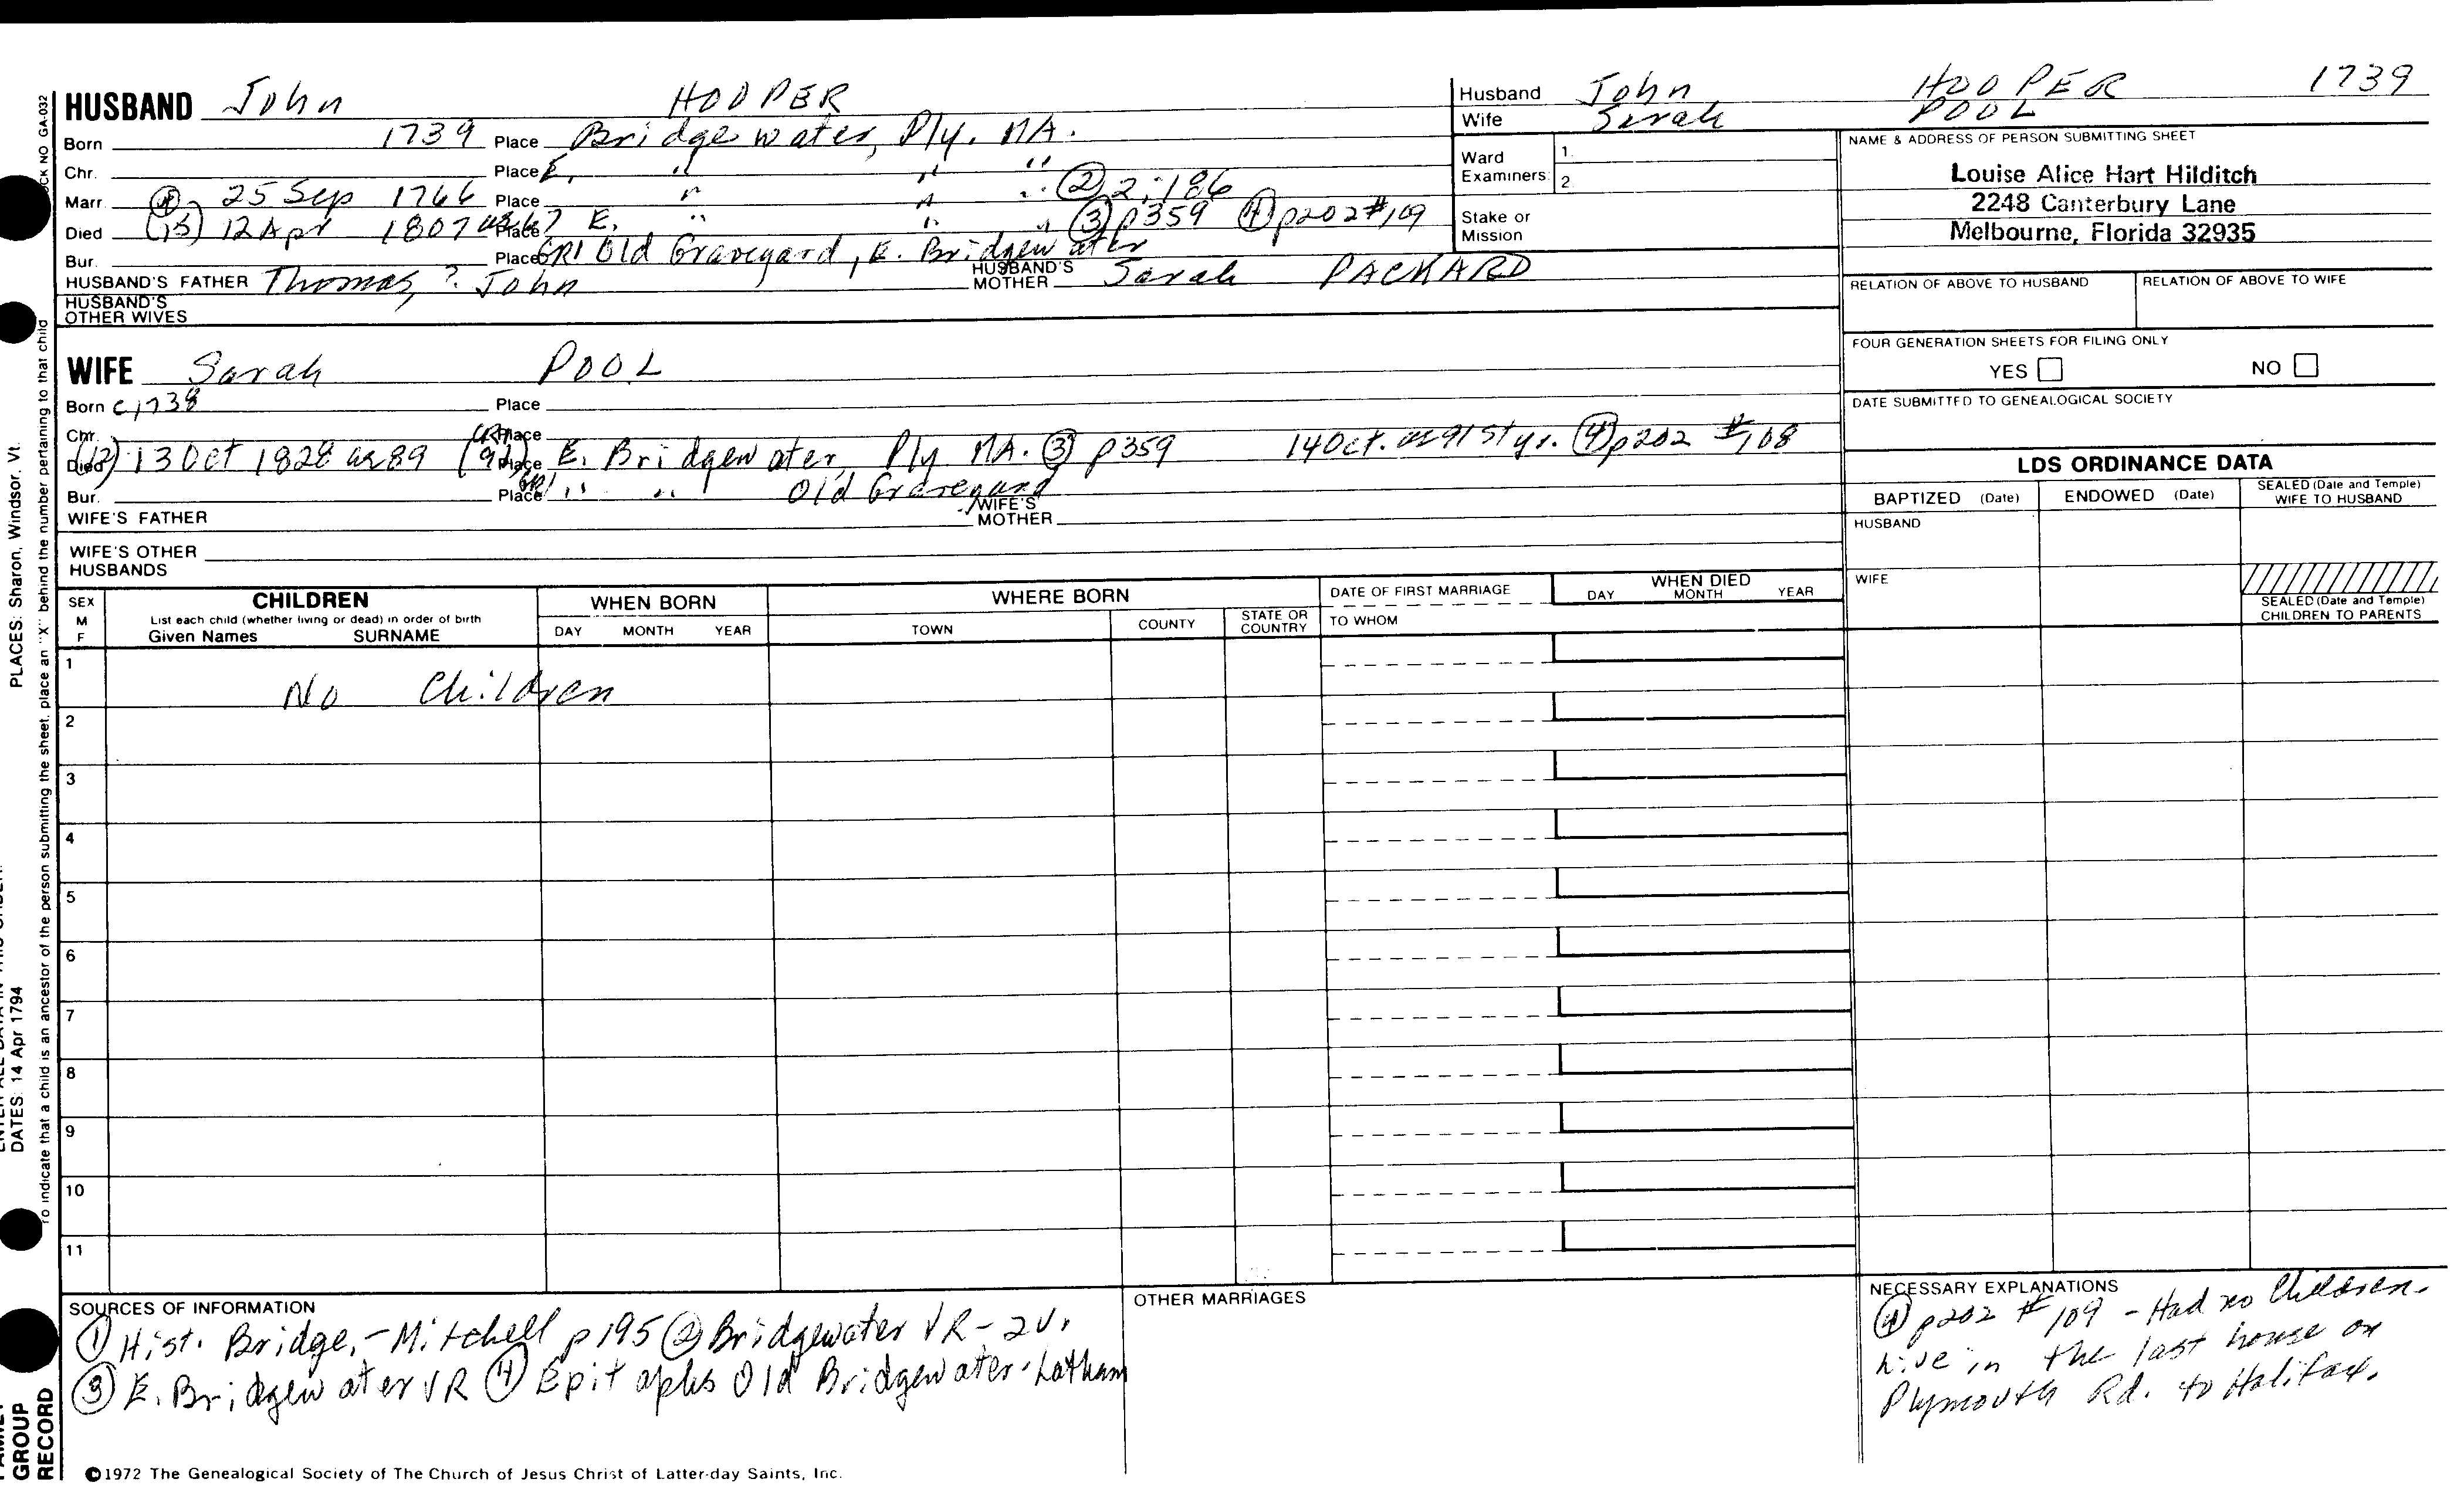 HUSBAND John HOOPER
Born 1739 Place Bridgewater, Ply. MA.
Chr. Place E, " " "
Marr. 25 Sep 1766 Place " " " ② 2:186
Died (15) 12 Apr 1807 ae 67 Place E. " " " ③ p359 ④ p202 #109
Bur. Place GR1 Old Graveyard, E. Bridgewater
HUSBAND'S FATHER Thomas, ? John HUSBAND'S MOTHER Sarah PACKARD
HUSBAND'S OTHER WIVES
Husband John HOOPER 1739
Wife Sarah POOL
Ward Examiners: 1. 2
Stake or Mission
NAME & ADDRESS OF PERSON SUBMITTING SHEET
Louise Alice Hart Hilditch
2248 Canterbury Lane
Melbourne, Florida 32935
RELATION OF ABOVE TO HUSBAND RELATION OF ABOVE TO WIFE
FOUR GENERATION SHEETS FOR FILING ONLY
YES NO
DATE SUBMITTED TO GENEALOGICAL SOCIETY
WIFE Sarah POOL
Born c 1738 Place
Chr. Place
Died (12) 13 Oct 1828 ae 89 (CR 92) Place E. Bridgewater, Ply MA. ③ p359 14 Oct. ae 91st yr. ④ p202 #108
Bur. Place GR1 " " Old Graveyard
WIFE'S FATHER WIFE'S MOTHER
WIFE'S OTHER HUSBANDS
LDS ORDINANCE DATA
BAPTIZED (Date) ENDOWED (Date) SEALED (Date and Temple) WIFE TO HUSBAND
HUSBAND
WIFE
SEALED (Date and Temple) CHILDREN TO PARENTS
SEX M F
CHILDREN
List each child (whether living or dead) in order of birth
Given Names SURNAME
WHEN BORN
DAY MONTH YEAR
WHERE BORN
TOWN COUNTY STATE OR COUNTRY
DATE OF FIRST MARRIAGE
TO WHOM
WHEN DIED
DAY MONTH YEAR
1 No Children
2
3
4
5
6
7
8
9
10
11
SOURCES OF INFORMATION
① Hist. Bridge. - Mitchell p195 ② Bridgewater VR - 2v.
③ E. Bridgewater VR ④ Epitaphs Old Bridgewater - Latham
OTHER MARRIAGES
NECESSARY EXPLANATIONS
④ p202 #109 - Had no Children.
Live in the last house on
Plymouth Rd. to Halifax.
©1972 The Genealogical Society of The Church of Jesus Christ of Latter-day Saints, Inc.
PLACES: Sharon, Windsor, Vt.
DATES: 14 Apr 1794
To indicate that a child is an ancestor of the person submitting the sheet, place an "X" behind the number pertaining to that child
GROUP
RECORD